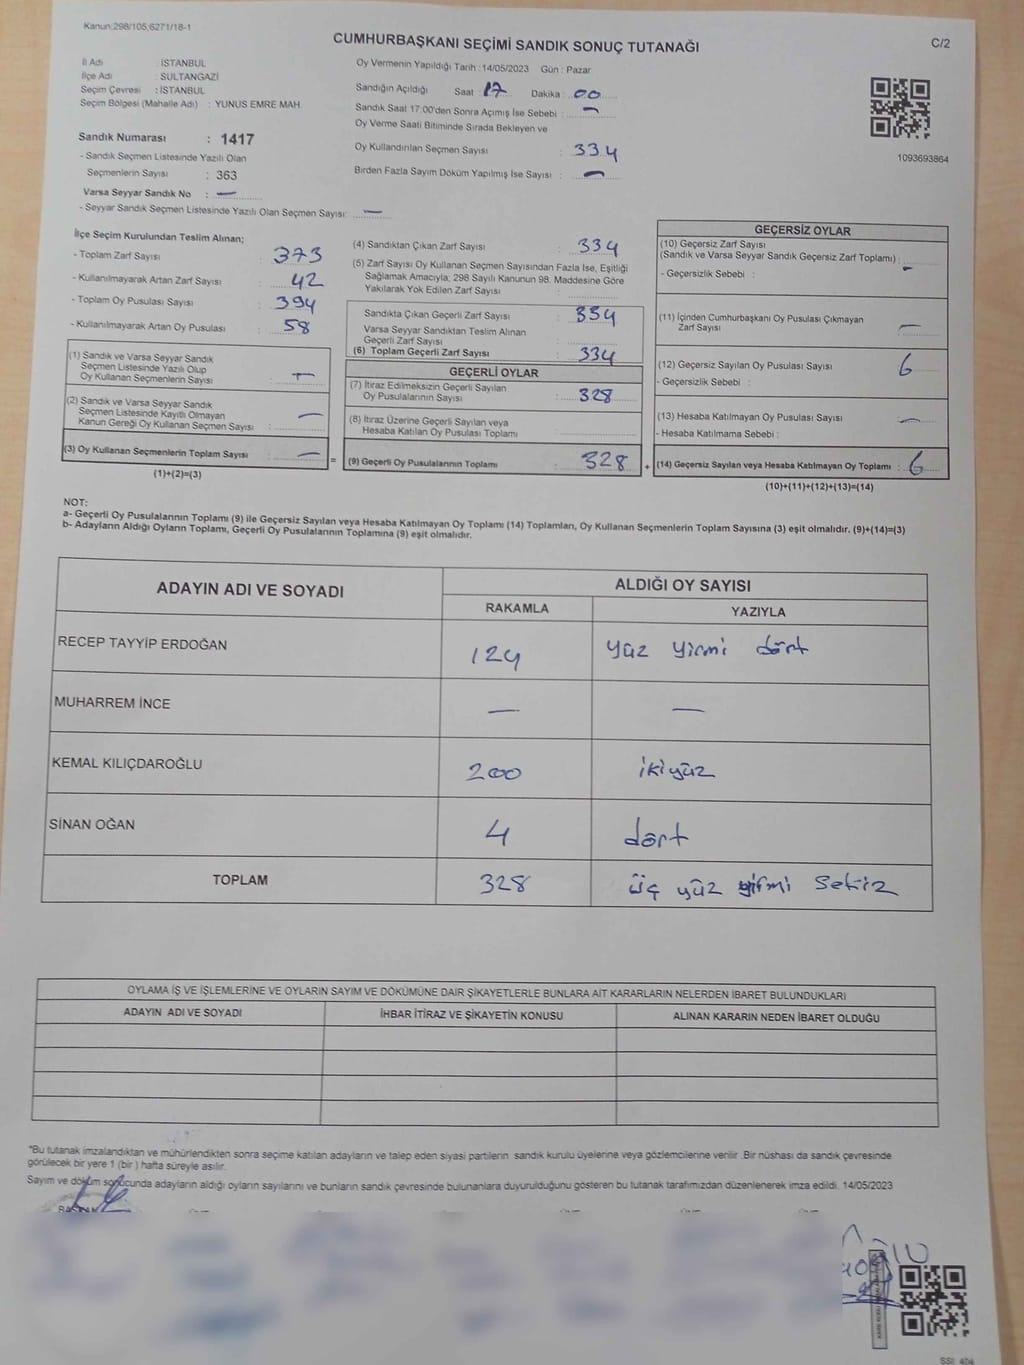 Kanun:298/105;6271/18-1
CUMHURBAŞKANI SEÇİMİ SANDIK SONUÇ TUTANAĞI
C/2
İl Adı : İSTANBUL
İlçe Adı : SULTANGAZİ
Seçim Çevresi : İSTANBUL
Seçim Bölgesi (Mahalle Adı) : YUNUS EMRE MAH.
Sandık Numarası : 1417
- Sandık Seçmen Listesinde Yazılı Olan
Seçmenlerin Sayısı : 363
Varsa Seyyar Sandık No : —
- Seyyar Sandık Seçmen Listesinde Yazılı Olan Seçmen Sayısı: —
Oy Vermenin Yapıldığı Tarih : 14/05/2023 Gün : Pazar
Sandığın Açıldığı Saat : 17 Dakika : 00
Sandık Saat 17:00'den Sonra Açımış İse Sebebi : —
Oy Verme Saati Bitiminde Sırada Bekleyen ve
Oy Kullandırılan Seçmen Sayısı : 334
Birden Fazla Sayım Döküm Yapılmış İse Sayısı : —
1093693864
İlçe Seçim Kurulundan Teslim Alınan;
- Toplam Zarf Sayısı : 373
- Kullanılmayarak Artan Zarf Sayısı : 42
- Toplam Oy Pusulası Sayısı : 394
- Kullanılmayarak Artan Oy Pusulası : 58
(1) Sandık ve Varsa Seyyar Sandık
Seçmen Listesinde Yazılı Olup
Oy Kullanan Seçmenlerin Sayısı : —
(2) Sandık ve Varsa Seyyar Sandık
Seçmen Listesinde Kayıtlı Olmayan
Kanun Gereği Oy Kullanan Seçmen Sayısı : —
(3) Oy Kullanan Seçmenlerin Toplam Sayısı : —
(1)+(2)=(3)
=
(4) Sandıktan Çıkan Zarf Sayısı : 334
(5) Zarf Sayısı Oy Kullanan Seçmen Sayısından Fazla İse, Eşitliği
Sağlamak Amacıyla; 298 Sayılı Kanunun 98. Maddesine Göre
Yakılarak Yok Edilen Zarf Sayısı :
Sandıkta Çıkan Geçerli Zarf Sayısı : 334
Varsa Seyyar Sandıktan Teslim Alınan
Geçerli Zarf Sayısı :
(6) Toplam Geçerli Zarf Sayısı : 334
GEÇERLİ OYLAR
(7) İtiraz Edilmeksizin Geçerli Sayılan
Oy Pusulalarının Sayısı : 328
(8) İtiraz Üzerine Geçerli Sayılan veya
Hesaba Katılan Oy Pusulası Toplamı :
(9) Geçerli Oy Pusulalarının Toplamı : 328
+
GEÇERSİZ OYLAR
(10) Geçersiz Zarf Sayısı
(Sandık ve Varsa Seyyar Sandık Geçersiz Zarf Toplamı) : —
- Geçersizlik Sebebi :
(11) İçinden Cumhurbaşkanı Oy Pusulası Çıkmayan
Zarf Sayısı : —
(12) Geçersiz Sayılan Oy Pusulası Sayısı : 6
- Geçersizlik Sebebi :
(13) Hesaba Katılmayan Oy Pusulası Sayısı : —
- Hesaba Katılmama Sebebi :
(14) Geçersiz Sayılan veya Hesaba Katılmayan Oy Toplamı : 6
(10)+(11)+(12)+(13)=(14)
NOT:
a- Geçerli Oy Pusulalarının Toplamı (9) ile Geçersiz Sayılan veya Hesaba Katılmayan Oy Toplamı (14) Toplamları, Oy Kullanan Seçmenlerin Toplam Sayısına (3) eşit olmalıdır. (9)+(14)=(3)
b- Adayların Aldığı Oyların Toplamı, Geçerli Oy Pusulalarının Toplamına (9) eşit olmalıdır.
ADAYIN ADI VE SOYADI
ALDIĞI OY SAYISI
RAKAMLA YAZIYLA
RECEP TAYYİP ERDOĞAN 124 Yüz Yirmi dört
MUHARREM İNCE — —
KEMAL KILIÇDAROĞLU 200 ikiyüz
SİNAN OĞAN 4 dört
TOPLAM 328 üç yüz yirmi sekiz
OYLAMA İŞ VE İŞLEMLERİNE VE OYLARIN SAYIM VE DÖKÜMÜNE DAİR ŞİKAYETLERLE BUNLARA AİT KARARLARIN NELERDEN İBARET BULUNDUKLARI
ADAYIN ADI VE SOYADI İHBAR İTİRAZ VE ŞİKAYETİN KONUSU ALINAN KARARIN NEDEN İBARET OLDUĞU
*Bu tutanak imzalandıktan ve mühürlendikten sonra seçime katılan adayların ve talep eden siyasi partilerin sandık kurulu üyelerine veya gözlemcilerine verilir .Bir nüshası da sandık çevresinde
görülecek bir yere 1 (bir ) hafta süreyle asılır.
Sayım ve döküm sonucunda adayların aldığı oyların sayılarını ve bunların sandık çevresinde bulunanlara duyurulduğunu gösteren bu tutanak tarafımızdan düzenlenerek imza edildi. 14/05/2023
BAŞKAN